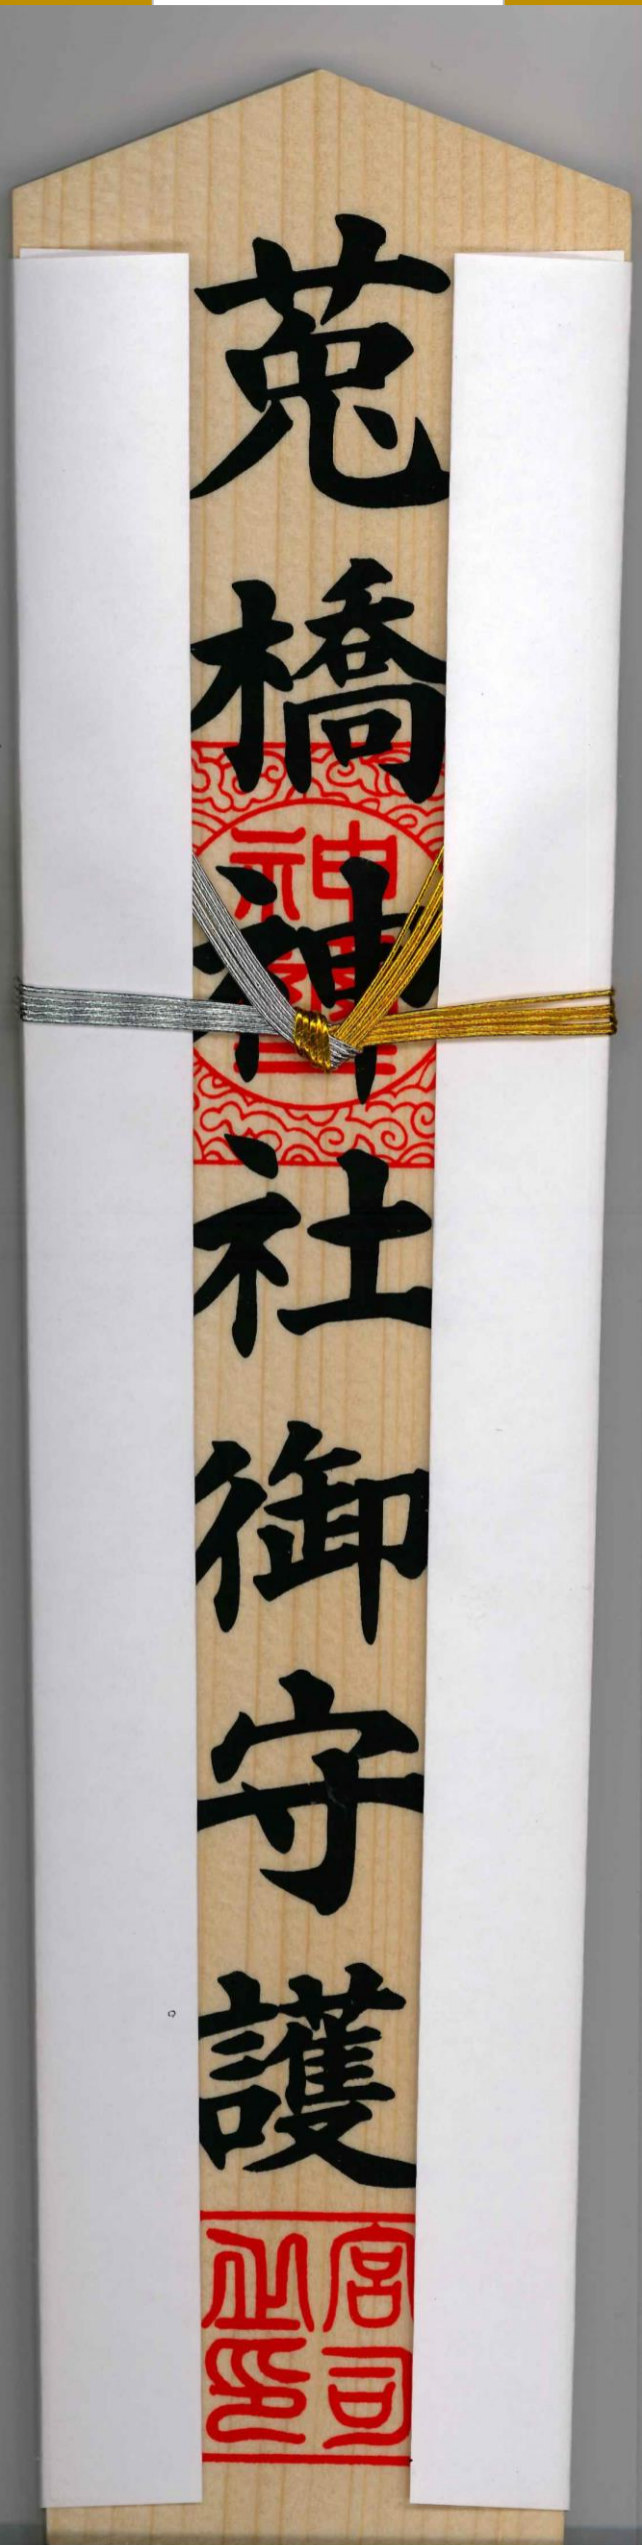 菟橋神社御守護
神璽
宮司之印